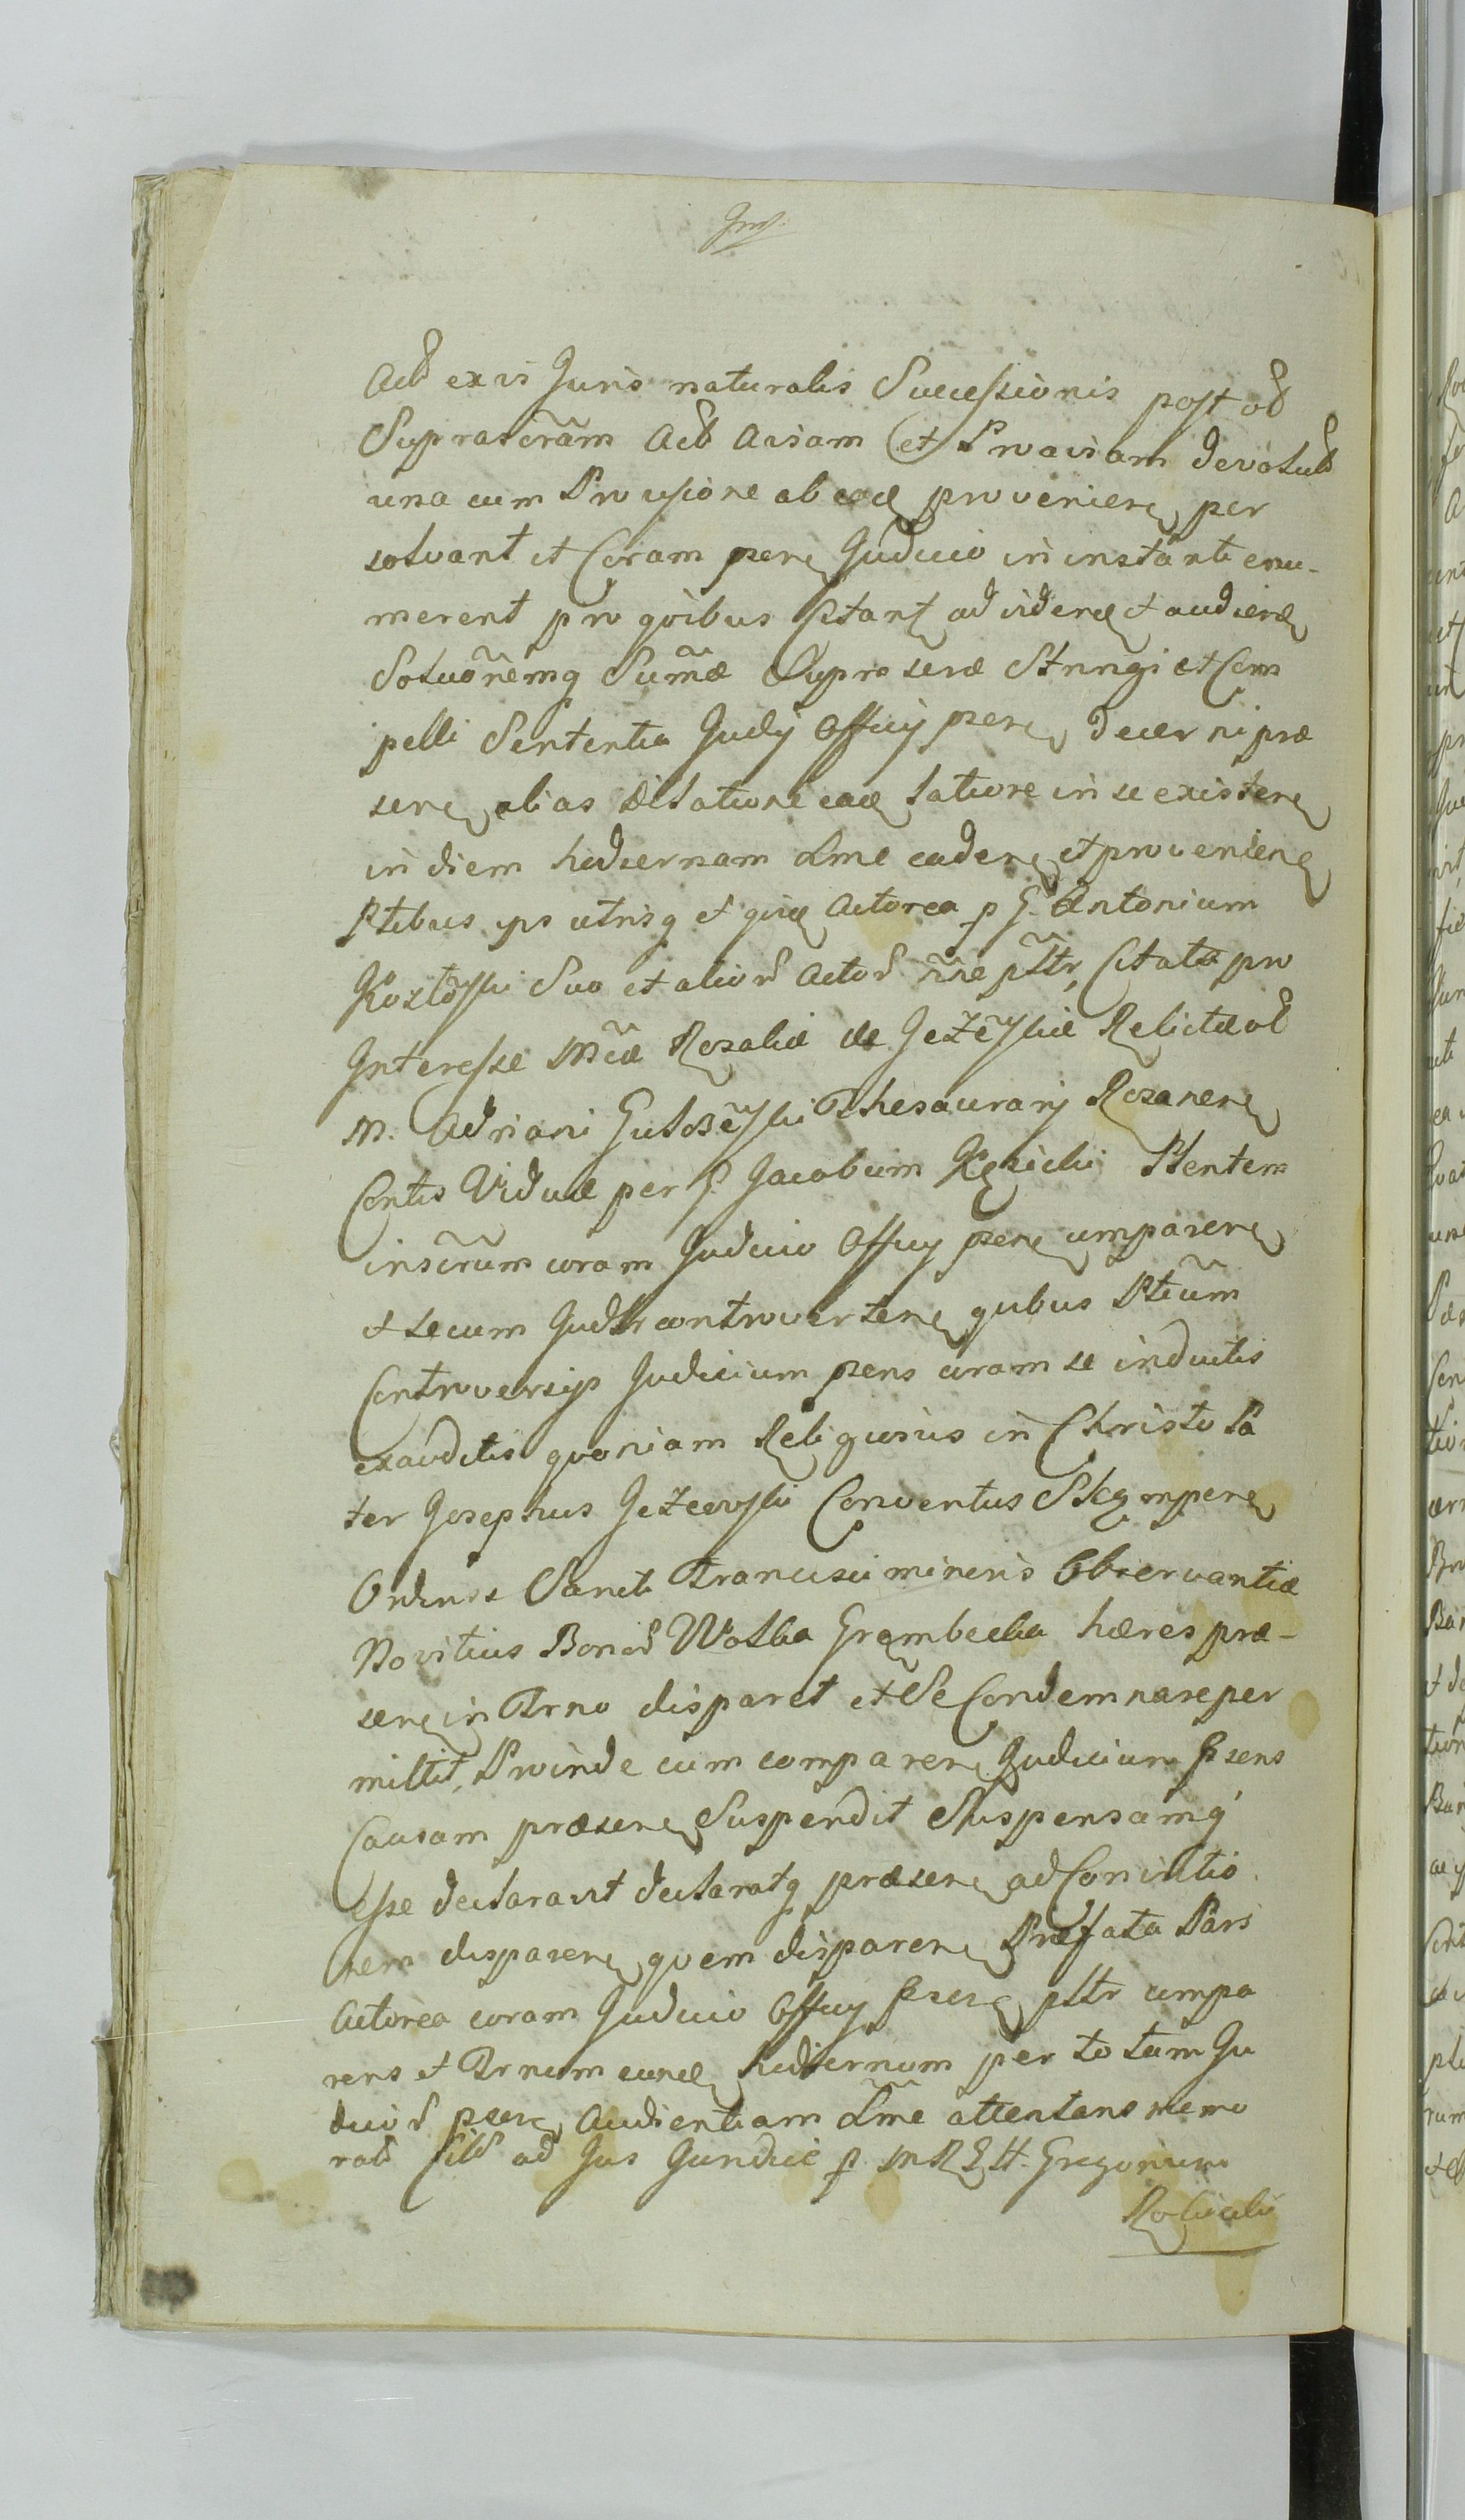 Actb ex vi Juris naturalis Successionis post ob
Suprascram Actb Aviam et Proaviam devolutb
una cum Provisione ab eade provenien per
solvant et Coram psen Judicio in instanti enu-
merent pro qvibus Citant ad videnđ et audiend
Solutonemq Sumæ Suprascræ Stringi et Com
pelli Sententia Judij Officij psen decerni præ
sen alias dilatione eade latiore in se existen
in diem hodiernam Lme caden et provenien
Ptibus ips utrisq et qive Actorea p G. Antonium
Kozłoski Suo et aliorb Actorb nne pltr, Citata pro
Interesse Mcæ Rosaliæ de Jeżeskie Relictæ ol
M. Adriani Gulczeski Thesaurarij Rozanen
Contis Viduæ per G. Jacobum Kęsicki Ptentem
inscrum coram Judicio Officij psen comparen
et secum Judlr controverten qvibus Ptium
Controversijs Judicium psens coram se inductis
exauditis qvoniam Religiosus in Christo Pa
ter Josephus Jeżewski Conventus Skęmpen
Ordinis Sancti Francisci minoris Observantiæ
Novitius Bonorb Wolka Grąmbecka hæres præ-
sen in Trno disparet et Se Condemnare per
mittit, Proinde cum comparen Judicium psens
Causam præsen Suspendit Suspensamq
esse declaravit declaratq præsen ad Convictio
nem disparen qvem disparen Præfata Pars
Actorea coram Judicio Officij psen pltr compa
rens et Trnum eund hodiernum per totam Ju
diciorb psen Audientiam Lme attentans memo
ratb Citb ad Jus Jundicie p M R G H. Gregorium
Rościcki